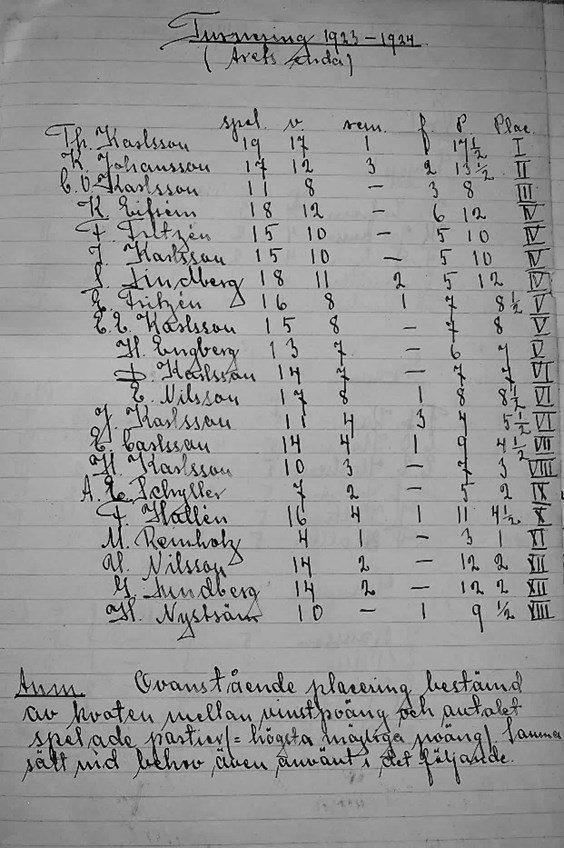 Turnering 1923-1924
(Årets enda)
spel. v. rem. f. P. Plac.
Th. Karlsson 19 17 1 1 17½ I
K. Johansson 17 12 3 2 13½ II
C. O. Karlsson 11 8 – 3 8 III
K. 18 12 – 6 12 IV
F. Fritzén 15 10 – 5 10 V
J. Karlsson 15 10 – 5 10 V
S. Lindberg 18 11 2 5 12 V
E. Fritzén 16 8 1 7 8½ V
E. E. Karlsson 15 8 – 7 8 V
H. Engberg 13 7 – 6 7 V
Karlsson 14 7 – 7 7 VI
E. Nilsson 17 8 1 8 8½ VI
J. Karlsson 11 4 3 4 5½ VI
E. Carlsson 14 4 1 9 4½ VII
H. Karlsson 10 3 – 7 3 VIII
A. E. Schyller 7 2 – 5 2 IX
F. Hallén 16 4 1 11 4½ X
M. Remholz 4 1 – 3 1 XI
Nilsson 14 2 – 12 2 XII
G. Lundberg 14 2 – 12 2 XII
H. Nyström 10 – 1 9 ½ XIII
Anm Ovanstående placering bestämd
av kvoten mellan vinstpoäng och antalet
spelade partier (= högsta möjliga poäng). Samma
sätt vid behov även använt i det följande.